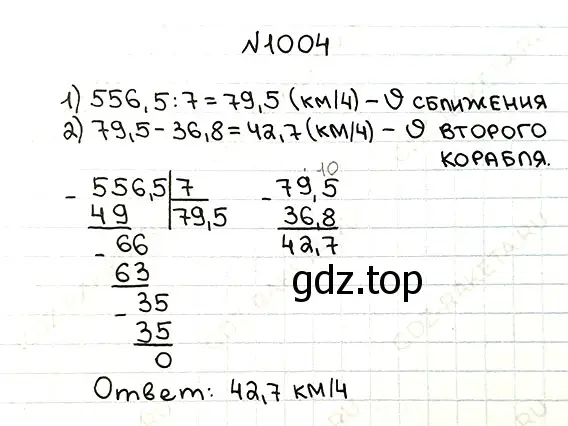 №1004
1) 556,5:7=79,5 (км/ч) – υ сближения
2) 79,5-36,8=42,7 (км/ч) – υ второго
корабля.
- 556,5 | 7
49 79,5
- 66
63
- 35
35
0
10
- 79,5
36,8
42,7
gdz.top
Ответ: 42,7 км/ч